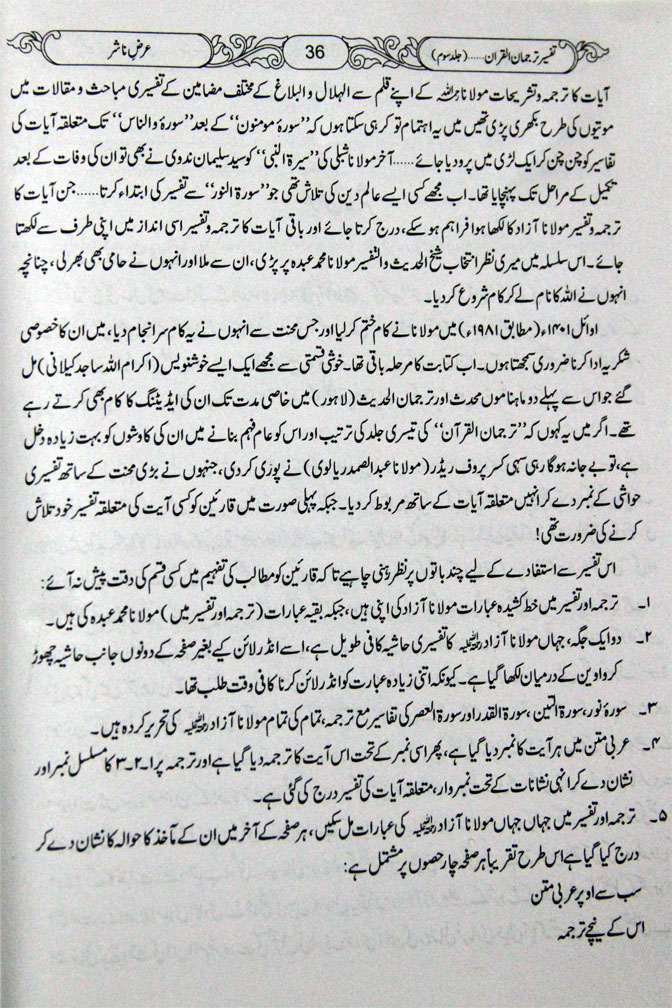 تفسیر ترجمان القرآن......(جلد سوم) 36 عرضِ ناشر
آیات کا ترجمہ و تشریحات مولانا رحمہ اللہ کے اپنے قلم سے الہلال و البلاغ کے مختلف مضامین کے تفسیری مباحث و مقالات میں
موتیوں کی طرح بکھری پڑی تھیں میں یہ اہتمام تو کر ہی سکتا ہوں کہ ”سورۂ مومنون“ کے بعد ”سورۂ والناس“ تک متعلقہ آیات کی
تفاسیر کو چن چن کر ایک لڑی میں پرو دیا جائے......آخر مولانا شبلی کی ”سیرۃ النبی“ کو سید سلیمان ندوی نے بھی تو ان کی وفات کے بعد
تکمیل کے مراحل تک پہنچایا تھا۔ اب مجھے کسی ایسے عالم دین کی تلاش تھی جو ”سورۃ النور“ سے تفسیر کی ابتداء کرتا......جن آیات کا
ترجمہ و تفسیر مولانا آزاد کا لکھا ہوا فراہم ہو سکے، درج کرتا جائے اور باقی آیات کا ترجمہ و تفسیر اسی انداز میں اپنی طرف سے لکھتا
جائے۔ اس سلسلہ میں میری نظر انتخاب شیخ الحدیث والتفسیر مولانا محمد عبدہ پر پڑی، ان سے ملا اور انہوں نے حامی بھی بھر لی، چنانچہ
انہوں نے اللہ کا نام لے کر کام شروع کر دیا۔
اوائل ۱۴۰۱ء (مطابق ۱۹۸۱ء) میں مولانا نے کام ختم کر لیا اور جس محنت سے انہوں نے یہ کام سرانجام دیا، میں ان کا خصوصی
شکریہ ادا کرنا ضروری سمجھتا ہوں۔ اب کتابت کا مرحلہ باقی تھا۔ خوش قسمتی سے مجھے ایک ایسے خوشنویس (اکرام اللہ ساجد کیلانی) مل
گئے جو اس سے پہلے دو ماہناموں محدث اور ترجمان الحدیث (لاہور) میں خاصی مدت تک ان کی ایڈیٹنگ کا کام بھی کرتے رہے
تھے۔ اگر میں یہ کہوں کہ ”ترجمان القرآن“ کی تیسری جلد کی ترتیب اور اس کو عام فہم بنانے میں ان کی کاوشوں کو بہت زیادہ دخل
ہے، تو بے جا نہ ہوگا رہی سہی کسر پروف ریڈر (مولانا عبدالصمد ریالوی) نے پوری کر دی، جنہوں نے بڑی محنت کے ساتھ تفسیری
حواشی کے نمبر دے کر انہیں متعلقہ آیات کے ساتھ مربوط کر دیا۔ جبکہ پہلی صورت میں قارئین کو کسی آیت کی متعلقہ تفسیر خود تلاش
کرنے کی ضرورت تھی!
اس تفسیر سے استفادے کے لیے چند باتوں پر نظر رہنی چاہیے تاکہ قارئین کو مطالب کی تفہیم میں کسی قسم کی دقت پیش نہ آئے:
۱۔ ترجمہ اور تفسیر میں خط کشیدہ عبارات مولانا آزاد کی اپنی ہیں، جبکہ بقیہ عبارات (ترجمہ اور تفسیر میں) مولانا محمد عبدہ کی ہیں۔
۲۔ دو ایک جگہ، جہاں مولانا آزاد رحمۃ اللہ علیہ کا تفسیری حاشیہ کافی طویل ہے، اسے انڈر لائن کیے بغیر صفحہ کے دونوں جانب حاشیہ چھوڑ
کر واوین کے درمیان لکھا گیا ہے۔ کیونکہ اتنی زیادہ عبارت کو انڈر لائن کرنا کافی وقت طلب تھا۔
۳۔ سورۂ نور، سورۃ التین، سورۃ القدر اور سورۃ العصر کی تفاسیر مع ترجمہ، تمام کی تمام مولانا آزاد رحمۃ اللہ علیہ کی تحریر کردہ ہیں۔
۴۔ عربی متن میں ہر آیت کا نمبر دیا گیا ہے، پھر اسی نمبر کے تحت اس آیت کا ترجمہ دیا گیا ہے اور ترجمہ پر ۱۔۲۔۳ کا مسلسل نمبر اور
نشان دے کر انہی نشانات کے تحت نمبروار، متعلقہ آیات کی تفسیر درج کی گئی ہے۔
۵۔ ترجمہ اور تفسیر میں جہاں جہاں مولانا آزاد رحمۃ اللہ علیہ کی عبارات مل سکیں، ہر صفحہ کے آخر میں ان کے مآخذ کا حوالہ کا نشان دے کر
درج کیا گیا ہے اس طرح تقریباً ہر صفحہ چار حصوں پر مشتمل ہے:
سب سے اوپر عربی متن
اس کے نیچے ترجمہ